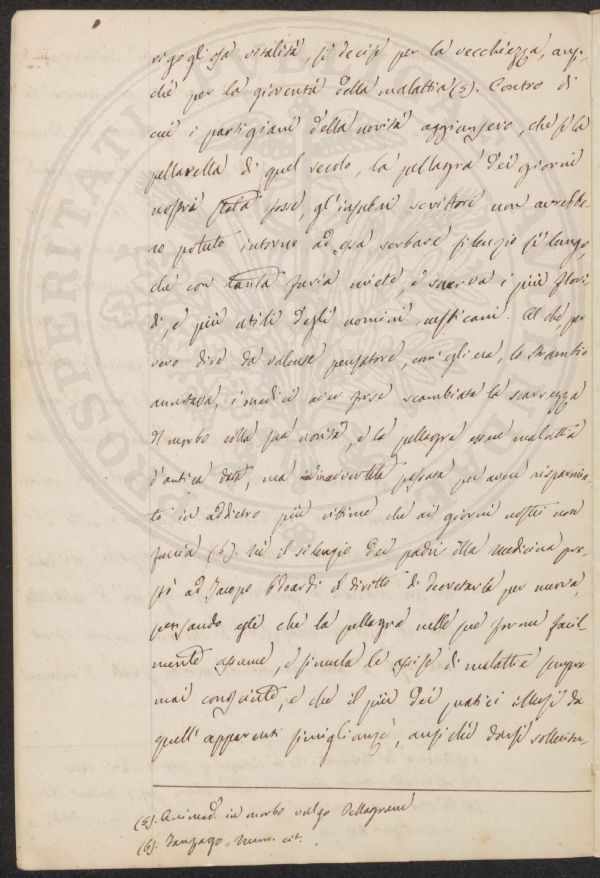 rigogliosa vitalità, si decise per la vecchiezza, anzi-
chè per la gioventù della malattia (5). Contro di
cui i partigiani della novità aggiunsero, che se la
pellarella di quel secolo, la pellagra dei giorni
nostri stata fosse, gl'insubri scrittori non avrebbe-
ro potuto intorno ad essa serbare silenzio sì lungo,
chè con tanta furia miete, e snerva i più flori-
di, e più utili degli uomini rusticani. Al che, per
vero dire, da valente pensatore, com'egli era, lo Strambio
annotava, i medici aver forse scambiata la scarsezza
del morbo colla sua novità, e la pellagra essere malattia
d'antica data, ma inavvertita passata per avere risparmia-
to in addietro più vittime che ai giorni nostri non
faccia (6). Nè il silenzio dei padri della medicina pre-
stò ad Jacopo Odoardi il diritto di decretarla per nuova,
pensando egli che la pellagra nelle sue forme facil-
mente assume, e simula le assise di malattie sempre
mai conosciute, e che il più dei pratici illusi da
quell'apparenti simiglianze, anzichè darsi sollecitu-
(5). Animad. in morbo vulgo Pellagram
(6). Fanzago = Mem. cit.
PROSPERITATI